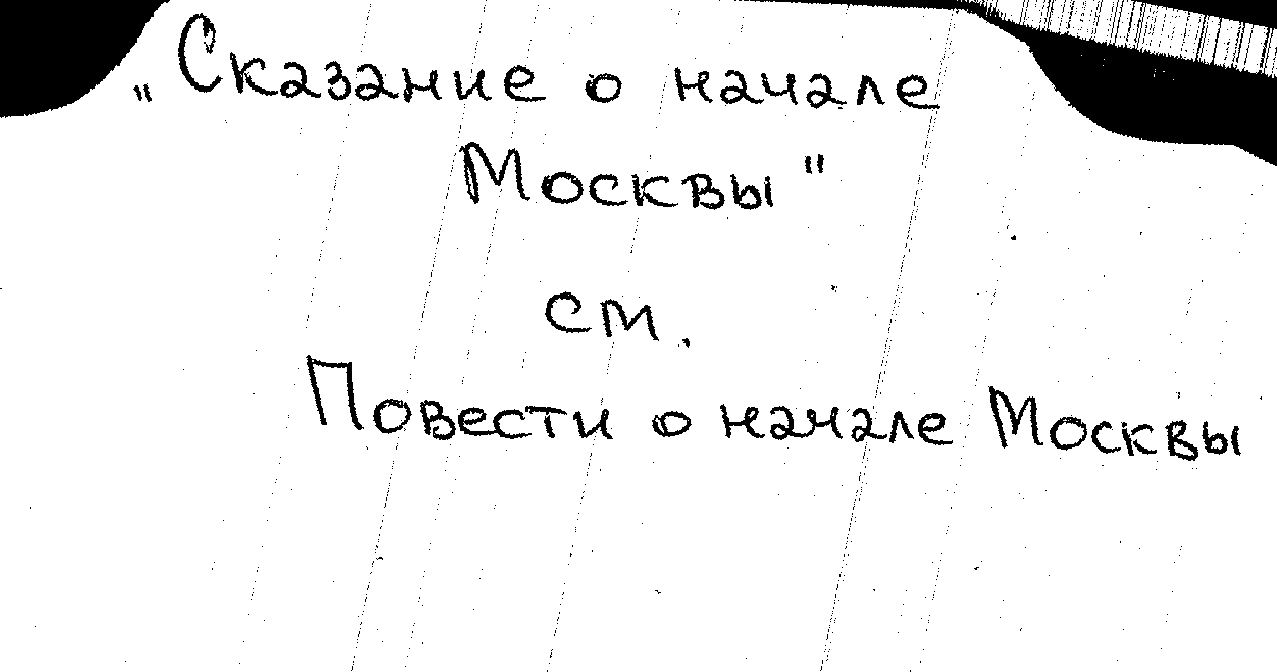 "Сказание о начале
Москвы"
см.
Повести о начале Москвы